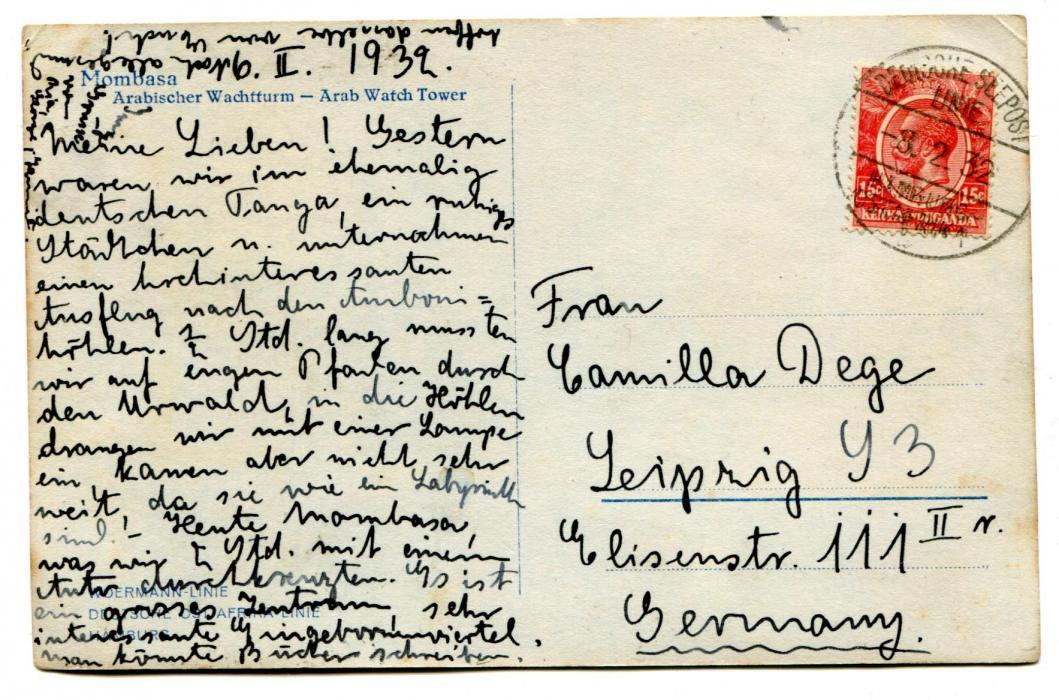 hoffen dasselbe von Euch!
Noch alle gesund
9. II. 1932.
Mombasa
Arabischer Wachtturm — Arab Watch Tower
Meine Lieben! Gestern
waren wir im ehemalig
deutschen Tanga, ein ruhiges
Städtchen u. unternahmen
einen hochinteressanten
Ausflug nach den Amboni=
höhlen. Std. lang mussten
wir auf engen Pfaden durch
den Urwald, in die Höhlen
drangen wir mit einer Lampe
ein, kamen aber nicht sehr
weit, da sie wie ein Labyrinth
sind. – Heute Mombasa,
was wir Std. mit einem
Auto durchkreuzten. Es ist
ein grosses Zentrum, sehr
interessante Eingeborenenviertel,
man könnte Bücher schreiben.
WOERMANN-LINIE
DEUTSCHE OST-AFRIKA-LINIE
HAMBURG
DEUTSCHE SEEPOST
LINIE
8. 2. 32
15c 15c
KENYA UGANDA
Frau
Camilla Dege
Leipzig S 3
Elisenstr. 111 II r.
Germany.